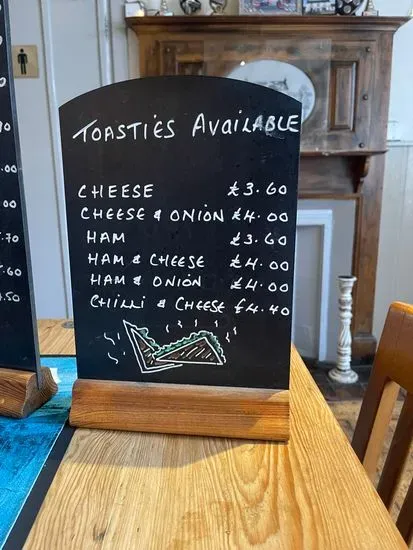 TOASTIES AVAILABLE
CHEESE £3.60
CHEESE & ONION £4.00
HAM £3.60
HAM & CHEESE £4.00
HAM & ONION £4.00
CHILLI & CHEESE £4.40